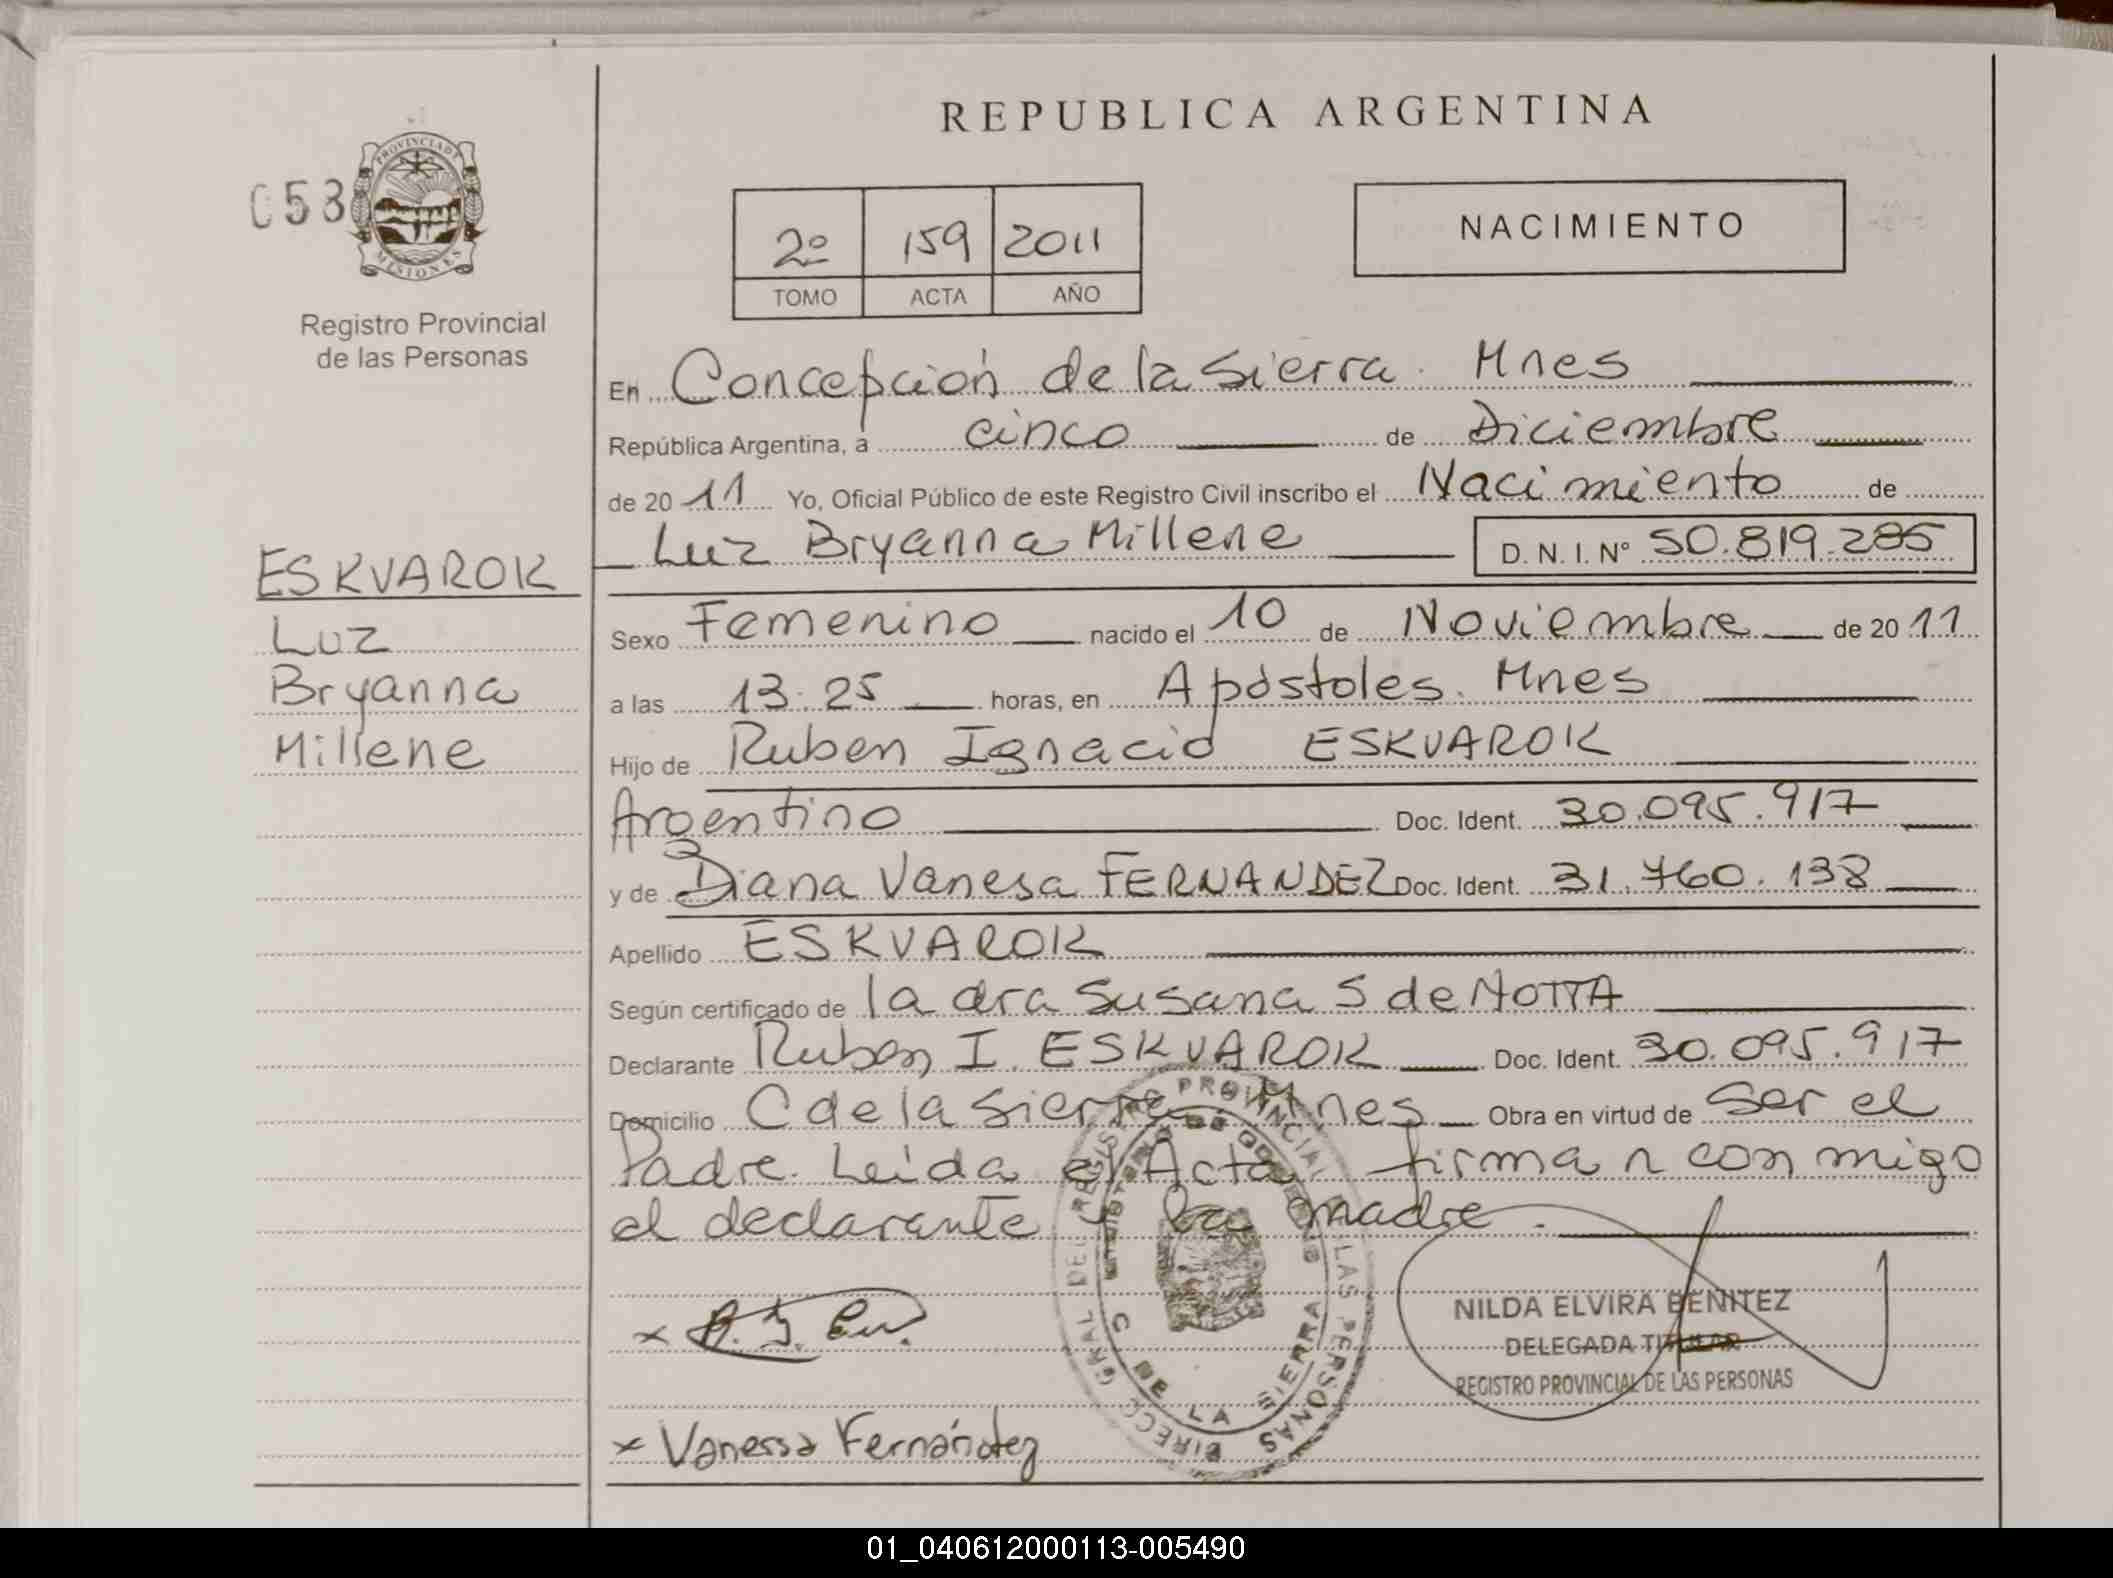 REPUBLICA ARGENTINA
053
PROVINCIA DE
MISIONES
Registro Provincial
de las Personas
2º 159 2011
TOMO ACTA AÑO
NACIMIENTO
En Concepción de la Sierra. Mnes
República Argentina, a cinco de Diciembre
de 2011 Yo, Oficial Público de este Registro Civil inscribo el Nacimiento de
Luz Bryanna Millene D. N. I. Nº 50.819.285
ESKVAROK
Luz
Bryanna
Millene
Sexo Femenino nacido el 10 de Noviembre de 2011
a las 13:25 horas, en Apóstoles. Mnes
Hijo de Ruben Ignacio ESKVAROK
Argentino Doc. Ident. 30.095.917
y de Diana Vanesa FERNANDEZ Doc. Ident. 31.760.138
Apellido ESKVAROK
Según certificado de la dra Susana S de MOTTA
Declarante Ruben I. ESKVAROK Doc. Ident. 30.095.917
Domicilio C de la Sierra Mnes Obra en virtud de Ser el
Padre. Leida el Acta firman conmigo
el declarante y la madre.
DIRECC. GRAL. DEL REGISTRO PROVINCIAL DE LAS PERSONAS
MINISTERIO DE GOBIERNO
C DE LA SIERRA
NILDA ELVIRA BENITEZ
DELEGADA TITULAR
REGISTRO PROVINCIAL DE LAS PERSONAS
x Vanessa Fernández
01_040612000113-005490